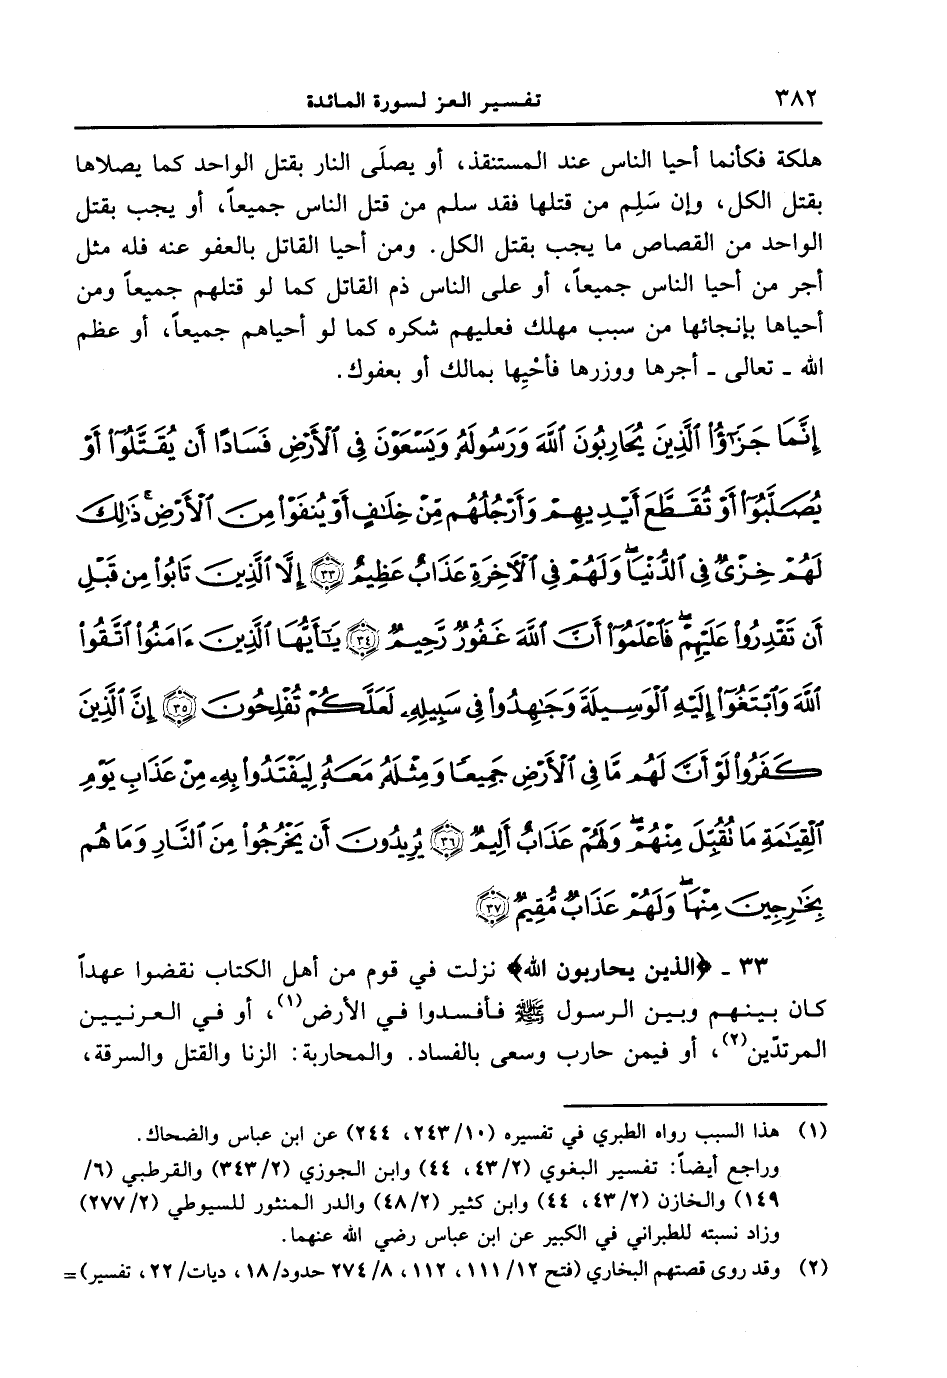 ٣٨٢ تفسير العز لسورة المائدة
هلكة فكأنما أحيا الناس عند المستنقذ، أو يصلَى النار بقتل الواحد كما يصلاها
بقتل الكل، وإن سَلِم من قتلها فقد سلم من قتل الناس جميعاً، أو يجب بقتل
الواحد من القصاص ما يجب بقتل الكل. ومن أحيا القاتل بالعفو عنه فله مثل
أجر من أحيا الناس جميعاً، أو على الناس ذم القاتل كما لو قتلهم جميعاً ومن
أحياها بإنجائها من سبب مهلك فعليهم شكره كما لو أحياهم جميعاً، أو عظم
الله ـ تعالى ـ أجرها ووزرها فأحْيِها بمالك أو بعفوك.
إِنَّمَا جَزَٰٓؤُا۟ ٱلَّذِينَ يُحَارِبُونَ ٱللَّهَ وَرَسُولَهُۥ وَيَسْعَوْنَ فِى ٱلْأَرْضِ فَسَادًا أَن يُقَتَّلُوٓا۟ أَوْ
يُصَلَّبُوٓا۟ أَوْ تُقَطَّعَ أَيْدِيهِمْ وَأَرْجُلُهُم مِّنْ خِلَٰفٍ أَوْ يُنفَوْا۟ مِنَ ٱلْأَرْضِ ۚ ذَٰلِكَ
لَهُمْ خِزْىٌ فِى ٱلدُّنْيَا ۖ وَلَهُمْ فِى ٱلْآخِرَةِ عَذَابٌ عَظِيمٌ ٣٣ إِلَّا ٱلَّذِينَ تَابُوا۟ مِن قَبْلِ
أَن تَقْدِرُوا۟ عَلَيْهِمْ ۖ فَٱعْلَمُوٓا۟ أَنَّ ٱللَّهَ غَفُورٌ رَّحِيمٌ ٣٤ يَٰٓأَيُّهَا ٱلَّذِينَ ءَامَنُوا۟ ٱتَّقُوا۟
ٱللَّهَ وَٱبْتَغُوٓا۟ إِلَيْهِ ٱلْوَسِيلَةَ وَجَٰهِدُوا۟ فِى سَبِيلِهِۦ لَعَلَّكُمْ تُفْلِحُونَ ٣٥ إِنَّ ٱلَّذِينَ
كَفَرُوا۟ لَوْ أَنَّ لَهُم مَّا فِى ٱلْأَرْضِ جَمِيعًا وَمِثْلَهُۥ مَعَهُۥ لِيَفْتَدُوا۟ بِهِۦ مِنْ عَذَابِ يَوْمِ
ٱلْقِيَٰمَةِ مَا تُقُبِّلَ مِنْهُمْ ۖ وَلَهُمْ عَذَابٌ أَلِيمٌ ٣٦ يُرِيدُونَ أَن يَخْرُجُوا۟ مِنَ ٱلنَّارِ وَمَا هُم
بِخَٰرِجِينَ مِنْهَا ۖ وَلَهُمْ عَذَابٌ مُّقِيمٌ ٣٧
٣٣ ـ ﴿الذين يحاربون الله﴾ نزلت في قوم من أهل الكتاب نقضوا عهداً
كان بينهم وبين الرسول ﷺ فأفسدوا في الأرض(١)، أو في العرنيين
المرتدّين(٢)، أو فيمن حارب وسعى بالفساد. والمحاربة: الزنا والقتل والسرقة،
(١) هذا السبب رواه الطبري في تفسيره (١٠/٢٤٣، ٢٤٤) عن ابن عباس والضحاك.
وراجع أيضاً: تفسير البغوي (٢/٤٣، ٤٤) وابن الجوزي (٢/٣٤٣) والقرطبي (٦/
١٤٩) والخازن (٢/٤٣، ٤٤) وابن كثير (٢/٤٨) والدر المنثور للسيوطي (٢/٢٧٧)
وزاد نسبته للطبراني في الكبير عن ابن عباس رضي الله عنهما.
(٢) وقد روى قصتهم البخاري (فتح ١٢/١١١، ١١٢، ٨/٢٧٤ حدود/١٨، ديات/٢٢، تفسير)=